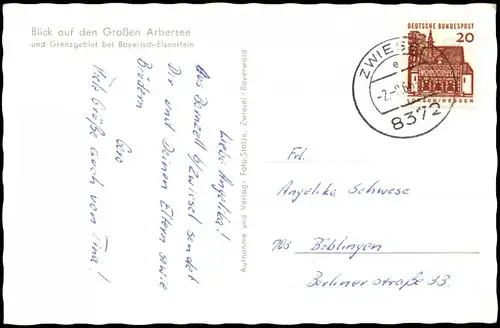 Blick auf den Großen Arbersee
und Grenzgebiet bei Bayerisch-Eisenstein
Liebe Angelika!
Aus Bernzell b/Zwiesel sendet
Dir und Deinen Eltern sowie
Brüdern
Viele Grüße auch von Tina!
Aufnahme und Verlag: Foto-Stolze, Zwiesel/Bayerwald
DEUTSCHE BUNDESPOST
20
LORSCH/HESSEN
ZWIESEL
e
8372
Frl.
Angelika Schwese
703 Böblingen
Berliner straße 33.